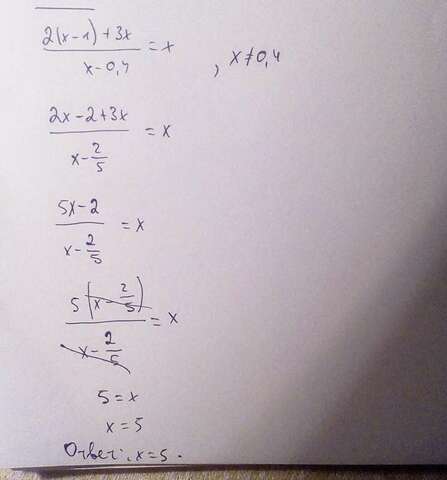 2(x-1)+3x / x-0,4 = x , x≠0,4
2x-2+3x / x-2/5 = x
5x-2 / x-2/5 = x
5(x-2/5) / x-2/5 = x
5=x
x=5
Ответ: x=5.